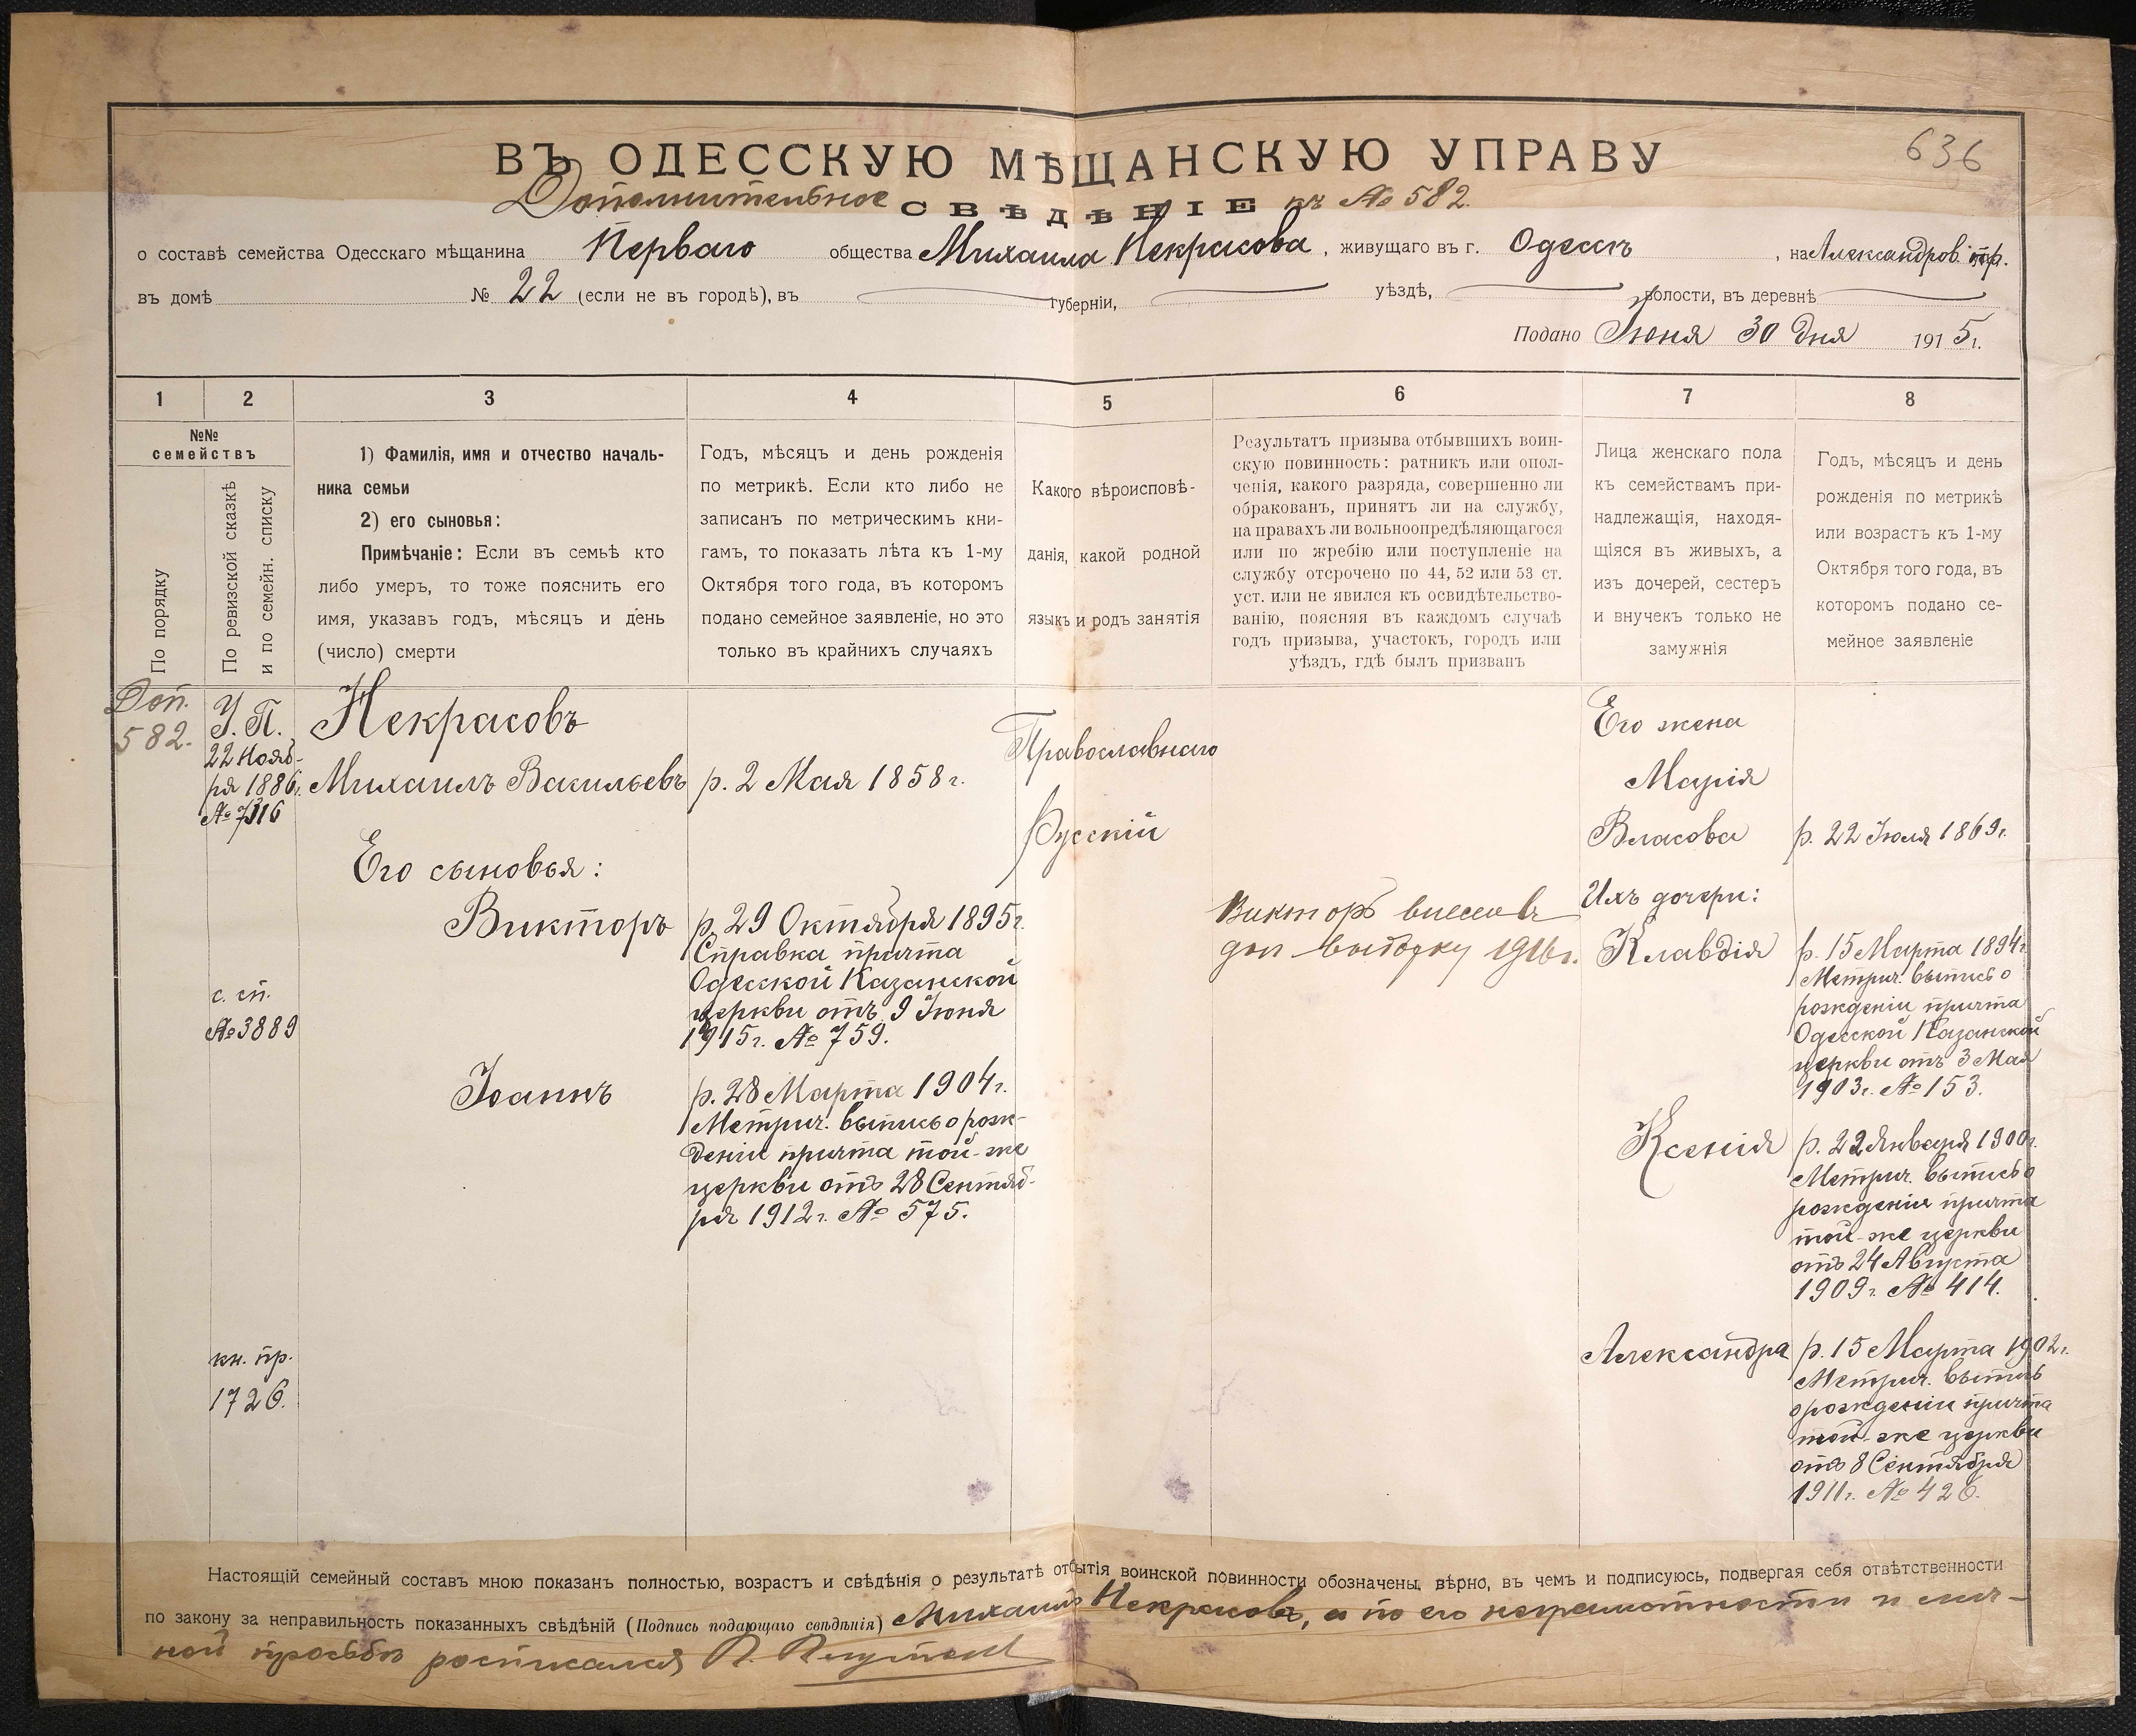 636
ВЪ ОДЕССКУЮ МѢЩАНСКУЮ УПРАВУ
Дополнительное СВѢДѢНІЕ къ № 582.
о составѣ семейства Одесскаго мѣщанина Перваго общества Михаила Некрасова, живущаго въ г. Одессѣ, на Александров. пр.
въ домѣ № 22 (если не въ городѣ), въ губерніи, уѣздѣ, волости, въ деревнѣ
Подано Іюня 30 дня 1915 г.
1 2 3 4 5 6 7 8
№№
семействъ
По порядку
По ревизской сказкѣ
и по семейн. списку
1) Фамилія, имя и отчество началь-
ника семьи
2) его сыновья:
Примѣчаніе: Если въ семьѣ кто
либо умеръ, то тоже пояснить его
имя, указавъ годъ, мѣсяцъ и день
(число) смерти
Годъ, мѣсяцъ и день рожденія
по метрикѣ. Если кто либо не
записанъ по метрическимъ кни-
гамъ, то показать лѣта къ 1-му
Октября того года, въ которомъ
подано семейное заявленіе, но это
только въ крайнихъ случаяхъ
Какого вѣроисповѣ-
данія, какой родной
языкъ и родъ занятія
Результатъ призыва отбывшихъ воин-
скую повинность: ратникъ или опол-
ченія, какого разряда, совершенно ли
обракованъ, принятъ ли на службу,
на правахъ ли вольноопредѣляющагося
или по жребію или поступленіе на
службу отсрочено по 44, 52 или 53 ст.
уст. или не явился къ освидѣтельство-
ванію, поясняя въ каждомъ случаѣ
годъ призыва, участокъ, городъ или
уѣздъ, гдѣ былъ призванъ
Лица женскаго пола
къ семействамъ при-
надлежащія, находя-
щіяся въ живыхъ, а
изъ дочерей, сестеръ
и внучекъ только не
замужнія
Годъ, мѣсяцъ и день
рожденія по метрикѣ
или возрастъ къ 1-му
Октября того года, въ
которомъ подано се-
мейное заявленіе
Доп.
582.
У. П.
22 Нояб-
ря 1886 г.
№ 7316
с. сп.
№ 3889
кн. пр.
1726.
Некрасовъ
Михаилъ Васильевъ
Его сыновья:
Викторъ
Іоаннъ
р. 2 Мая 1858 г.
р. 29 Октября 1895 г.
Справка причта
Одесской Казанской
церкви отъ 9 Іюня
1915 г. № 759.
р. 28 Марта 1904 г.
Метрич. выпись о рож-
деніи причта той-же
церкви отъ 28 Сентяб-
ря 1912 г. № 575.
Православнаго
Русскій
Викторъ внесенъ въ
доп выборку 1916 г.
Его жена
Марія
Власова
Ихъ дочери:
Клавдія
Ксенія
Александра
р. 22 Іюля 1869 г.
р. 15 Марта 1894 г.
Метрич. выпись о
рожденіи причта
Одесской Казанской
церкви отъ 3 Мая
1903 г. № 153.
р. 22 Января 1900 г.
Метрич. выпись о
рожденіи причта
той-же церкви
отъ 24 Августа
1909 г. № 414.
р. 15 Марта 1902 г.
Метрич. выпись
о рожденіи причта
той-же церкви
отъ 8 Сентября
1911 г. № 426.
Настоящій семейный составъ мною показанъ полностью, возрастъ и свѣдѣнія о результатѣ отбытія воинской повинности обозначены вѣрно, въ чемъ и подписуюсь, подвергая себя отвѣтственности
по закону за неправильность показанныхъ свѣдѣній (Подпись подающаго свѣдѣнія) Михаилъ Некрасовъ, а по его неграмотности и лич-
ной просьбѣ росписался